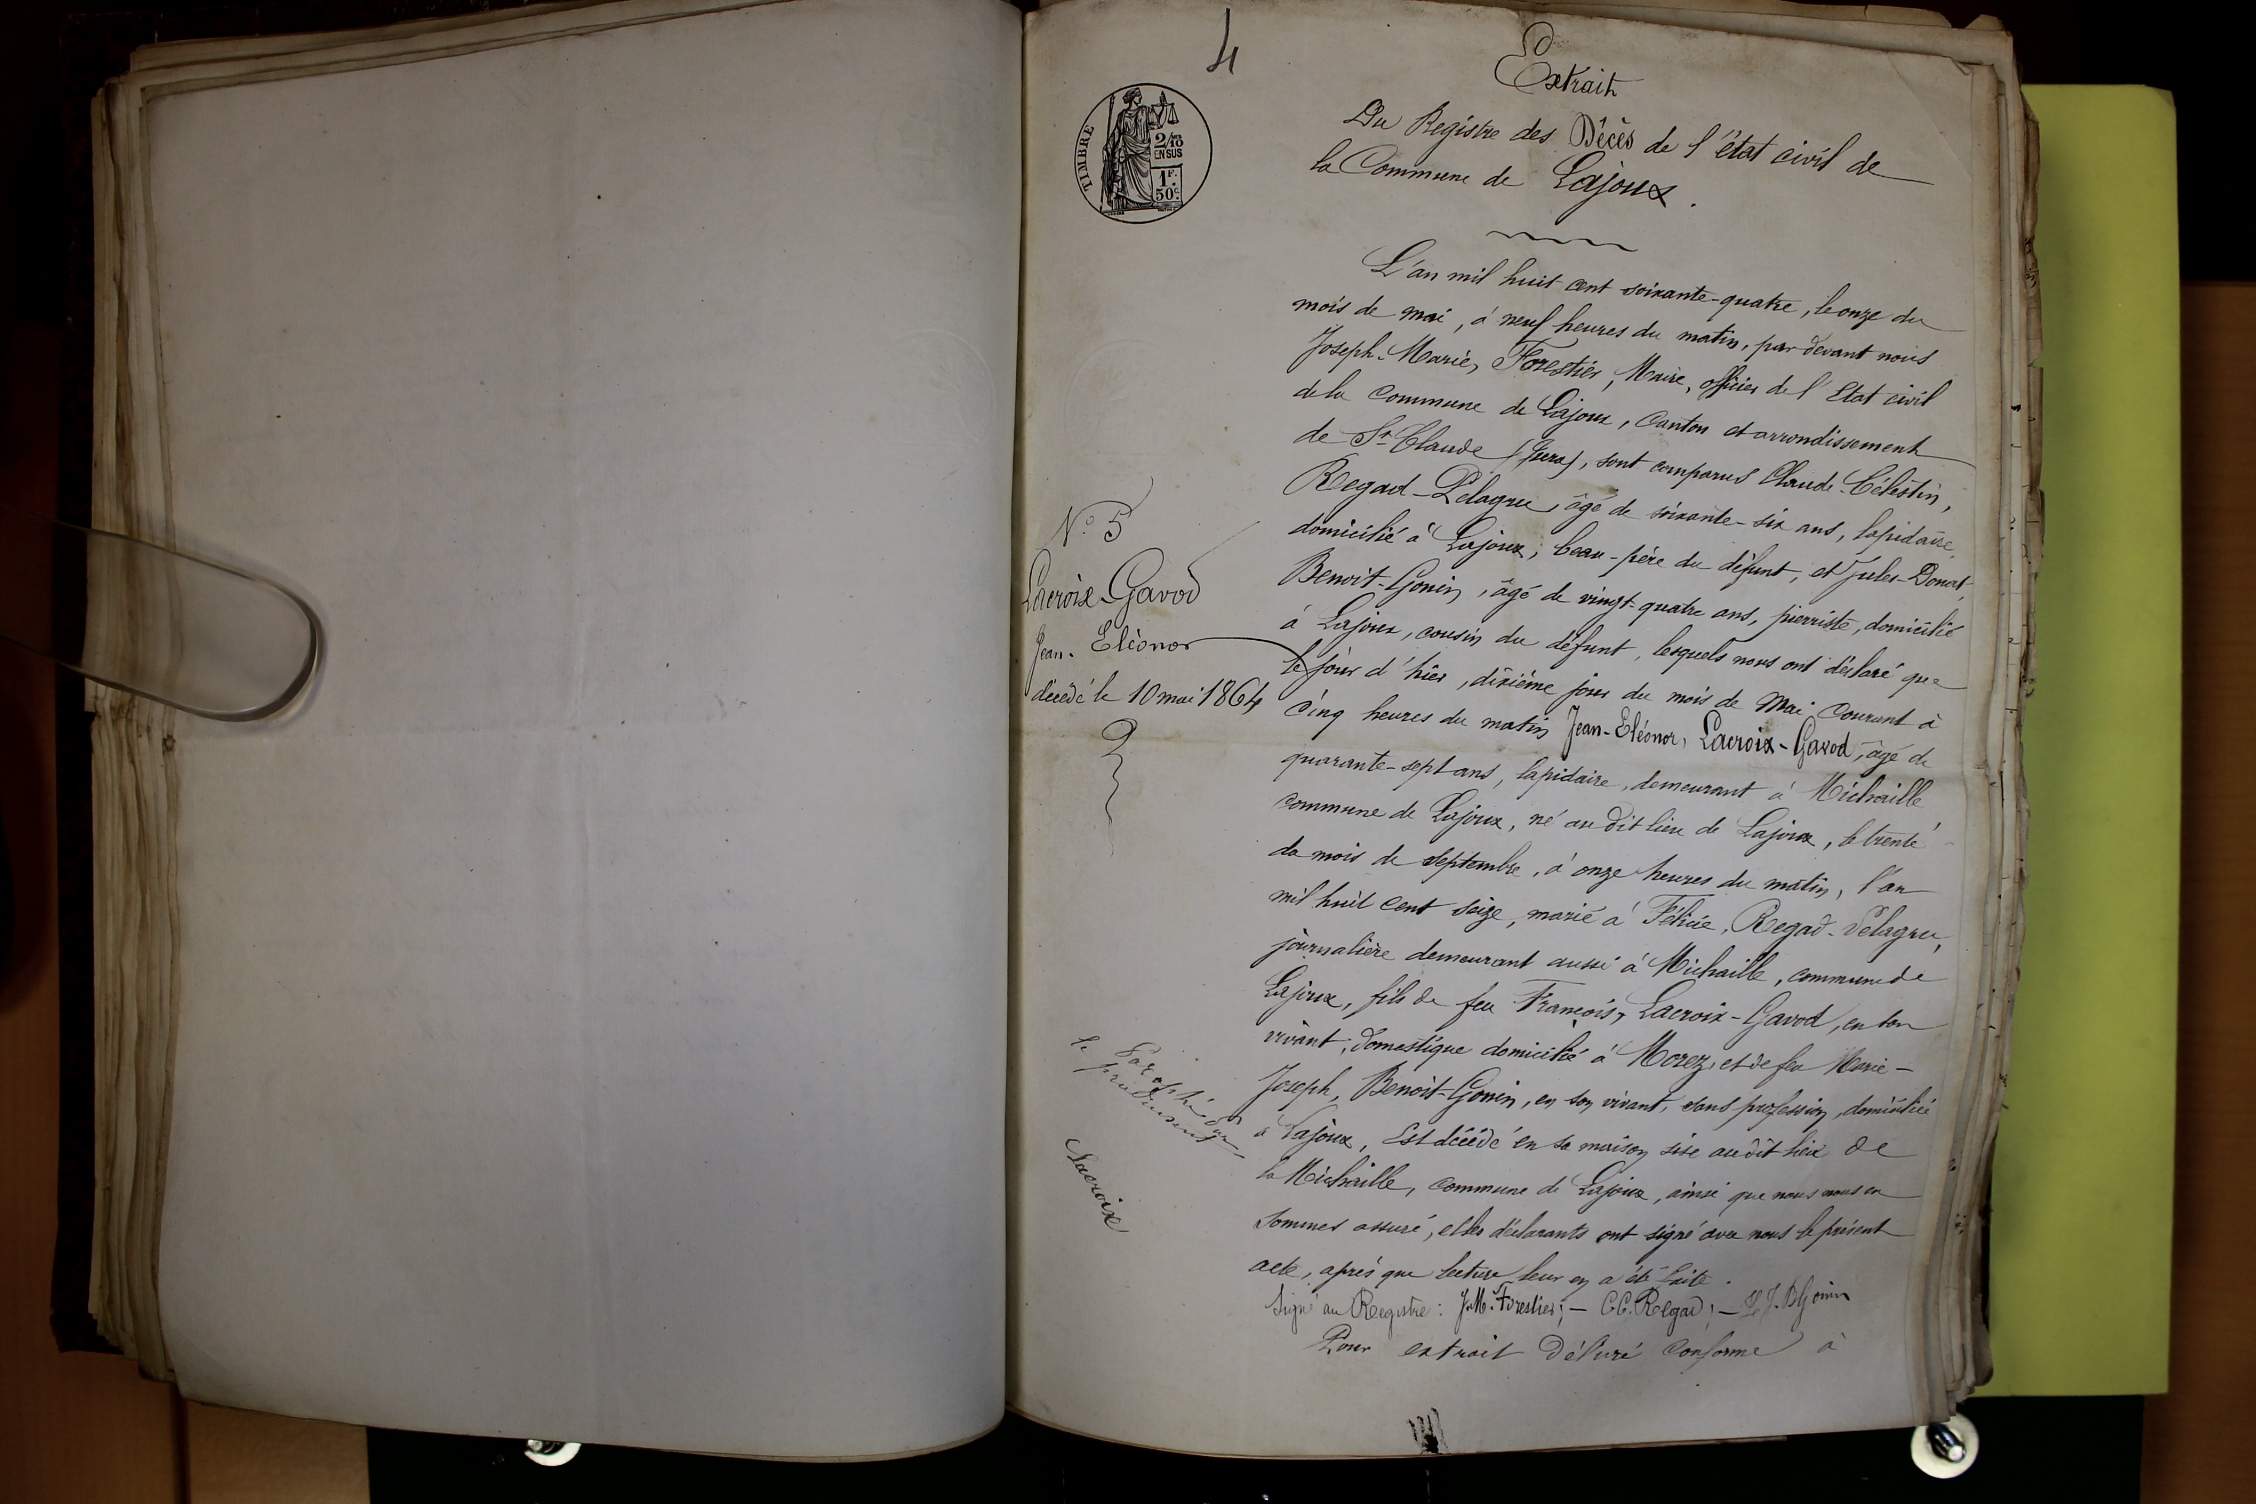 4
TIMBRE
2/10
EN SUS
1F.
50c.
Extrait
Du Registre des Décès de l'état civil de
la Commune de Lajoux.
L'an mil huit cent soixante-quatre, le onze du
mois de mai, à neuf heures du matin, par devant nous
Joseph-Marie, Forestier, Maire, officier de l'Etat civil
de la Commune de Lajoux, Canton et arrondissement
de St Claude (Jura), sont comparus Claude-Célestin,
Regad-Pelagru, âgé de soixante-six ans, lapidaire,
domicilié à Lajoux, beau-père du défunt, et Jules-Donat,
Benoit-Gonin, âgé de vingt-quatre ans, pierriste, domicilié
à Lajoux, cousin du défunt, lesquels nous ont déclaré que
le jour d'hier, dixième jour du mois de Mai Courant à
cinq heures du matin Jean-Eléonor, Lacroix-Gavod, âgé de
quarante-sept ans, lapidaire, demeurant à Michaille
commune de Lajoux, né au dit lieu de Lajoux, le trente
du mois de Septembre, à onze heures du matin, l'an
mil huit cent seize, marié à Félicie, Regad-Pelagru,
journalière demeurant aussi à Michaille, commune de
Lajoux, fils de feu François, Lacroix-Gavod, en son
vivant, domestique domicilié à Morez, et de feu Marie-
Joseph, Benoit-Gonin, en son vivant, sans profession, domicilié
à Lajoux, Est décédé en sa maison sise au dit lieu de
la Michaille, commune de Lajoux, ainsi que nous nous en
sommes assuré, et les déclarants ont signé avec nous le présent
acte, après que lecture leur en a été faite.
Signé au Registre: J.M. Forestier; - C.C. Regad; - J. B Gonin
Pour extrait délivré conforme à
No 5
Lacroix-Gavod
Jean-Eléonor
décédé le 10 mai 1864
Paraphé par
le président
Lacroix